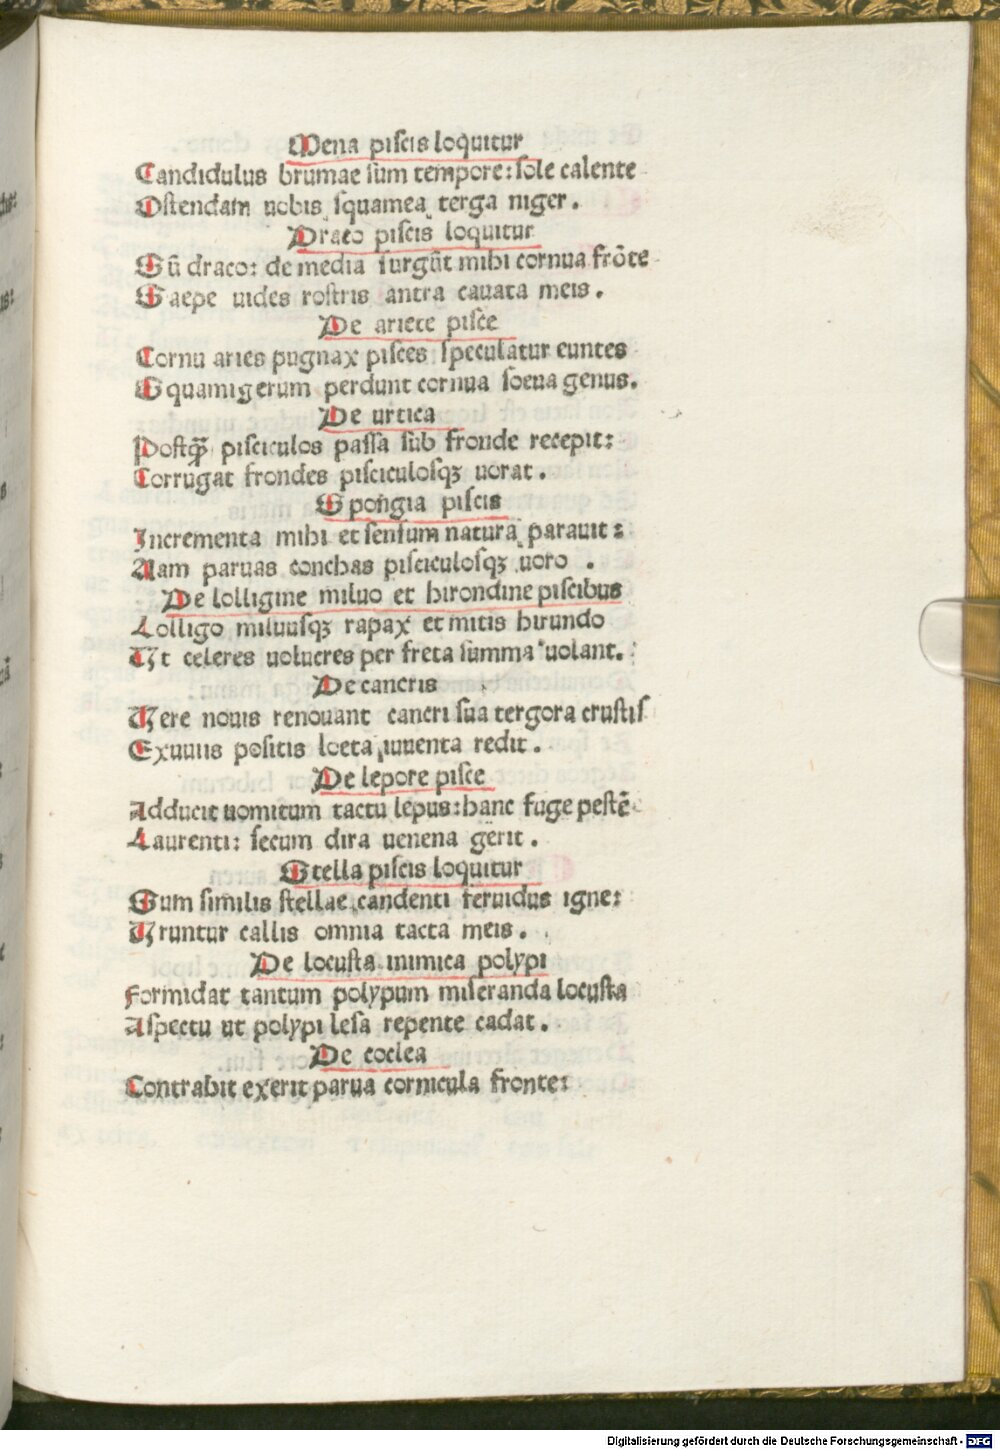 Mena piscis loquitur
Candidulus brumae sum tempore: sole calente
Ostendam uobis squamea terga niger.
Draco piscis loquitur
Sū draco: de media surgūt mihi cornua frōte
Saepe uides rostris antra cauata meis.
De ariete pisce
Cornu aries pugnax pisces speculatur euntes
Squamigerum perdunt cornua soeua genus.
De urtica
Postꝙ̄ pisciculos passa sub fronde recepit:
Corrugat frondes pisciculosqꝫ uorat.
Spongia piscis
Incrementa mihi et sensum natura parauit:
Nam paruas conchas pisciculosqꝫ uoro.
De lolligine miluo et hirondine piscibus
Lolligo miluusqꝫ rapax et mitis hirundo
Ut celeres uolucres per freta summa uolant.
De cancris
Vere nouis renouant cancri sua tergora crustis
Exuuiis positis loeta iuuenta redit.
De lepore pisce
Adducit uomitum tactu lepus: hanc fuge pestē
Laurenti: secum dira uenena gerit.
Stella piscis loquitur
Sum similis stellae candenti feruidus igne:
Uruntur callis omnia tacta meis.
De locusta inimica polypi
Formidat tantum polypum miseranda locusta
Aspectu ut polypi lesa repente cadat.
De coclea
Contrahit exerit parua cornicula fronte:
Digitalisierung gefördert durch die Deutsche Forschungsgemeinschaft - DFG